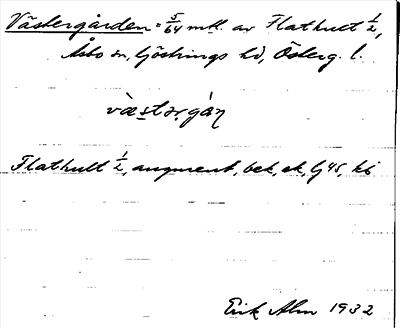 Västergården = 5/64 mtl. av Flathult 1/2,
Asbo sn, Göstrings hd, Österg. l.
væ̀stərgàṇ
Flathult 1/2, augment, bek, ek, lj 45, kb
Erik Alm 1932